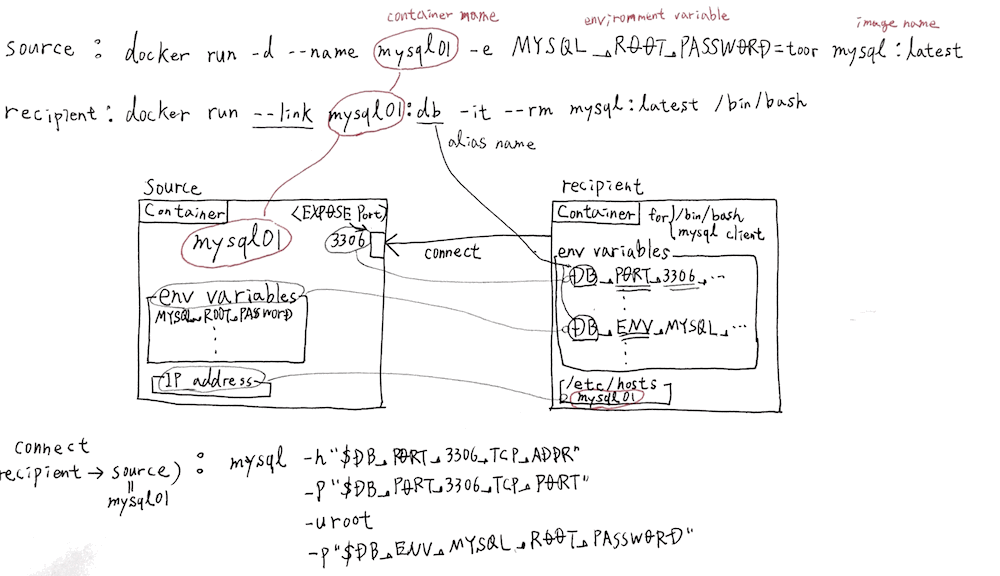 container name
environment variable
image name
source : docker run -d --name mysql01 -e MYSQL_ROOT_PASSWORD=toor mysql:latest
recipient : docker run --link mysql01:db -it --rm mysql:latest /bin/bash
alias name
Source
Container
<EXPOSE Port>
mysql01
3306
env variables
MYSQL_ROOT_PASSWORD
IP address
connect
recipient
Container
for /bin/bash
mysql client
env variables
DB_PORT_3306_...
DB_ENV_MYSQL_...
/etc/hosts
mysql01
connect
recipient → source) : mysql -h"$DB_PORT_3306_TCP_ADDR"
mysql01
-P"$DB_PORT_3306_TCP_PORT"
-uroot
-p"$DB_ENV_MYSQL_ROOT_PASSWORD"